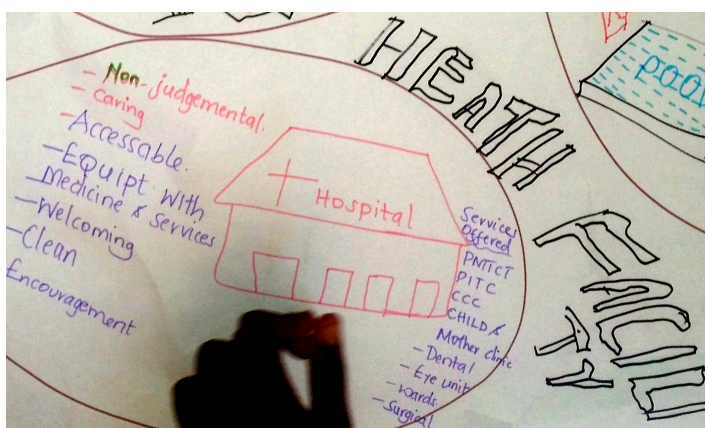 HEATH
FACILI
TY
POOL
- Non-judgemental.
- Caring
- Accessable.
- Equipt with
Medicine & Services
- Welcoming
- Clean
Encouragement
Hospital
Services
Offered
PNTCT
PITC
CCC
CHILD &
Mother clinic
- Dental
- Eye unit
- wards
- Surgical